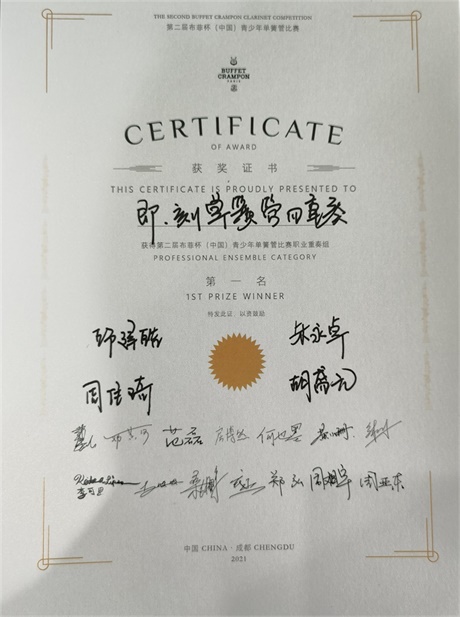 THE SECOND BUFFET CRAMPON CLARINET COMPETITION
第二届布菲杯（中国）青少年单簧管比赛
BUFFET
CRAMPON
PARIS
CERTIFICATE
OF AWARD
获奖证书
THIS CERTIFICATE IS PROUDLY PRESENTED TO
即·刻单簧管四重奏
获得第二届布菲杯（中国）青少年单簧管比赛职业重奏组
PROFESSIONAL ENSEMBLE CATEGORY
第一名
1ST PRIZE WINNER
特发此证，以资鼓励
周佳琦
范磊 何也墨
郑弘 周亚东
中国 CHINA·成都 CHENGDU
2021